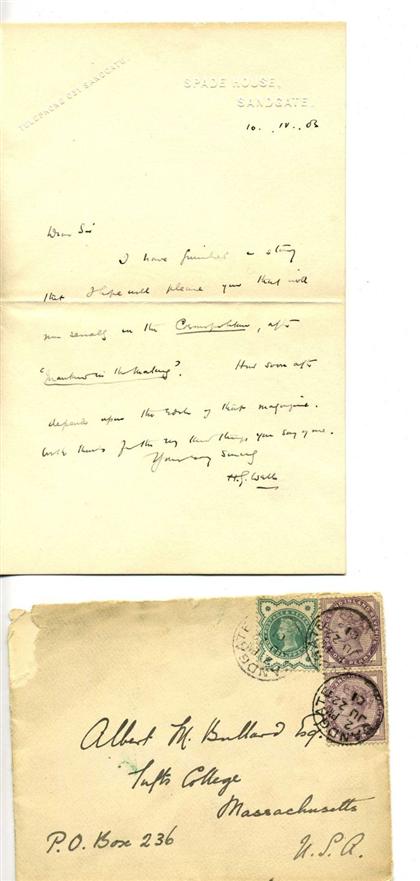 TELEPHONE 051 SANDGATE.
SPADE HOUSE,
SANDGATE.
10. IV. 03
Dear Sir
I have finished a story
that I hope will please you that will
run serially in the Cosmopolitan, after
"Mankind in the Making". How soon after
depends upon the Editor of that magazine.
With thanks for the very kind things you say of me.
Yours very sincerely
H.G. Wells
SANDGATE
SANDGATE
JU 22
01
Albert M. Bullard Esq.
Tufts College
Massachusetts
P.O. Box 236
U.S.A.